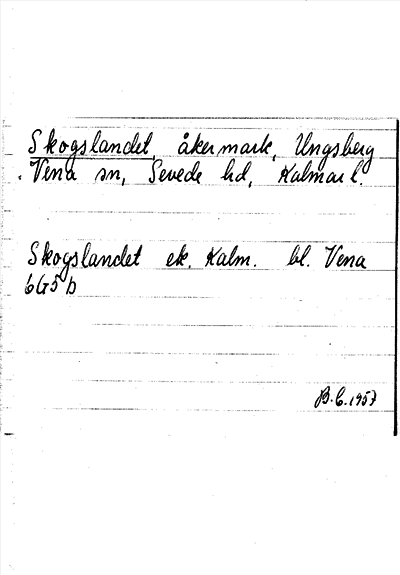 Skogslandet, åkermark, Ungsberg
Vena sn, Sevede hd, Kalmar l.
Skogslandet ek. Kalm. bl. Vena
6G5b
B.C. 1957